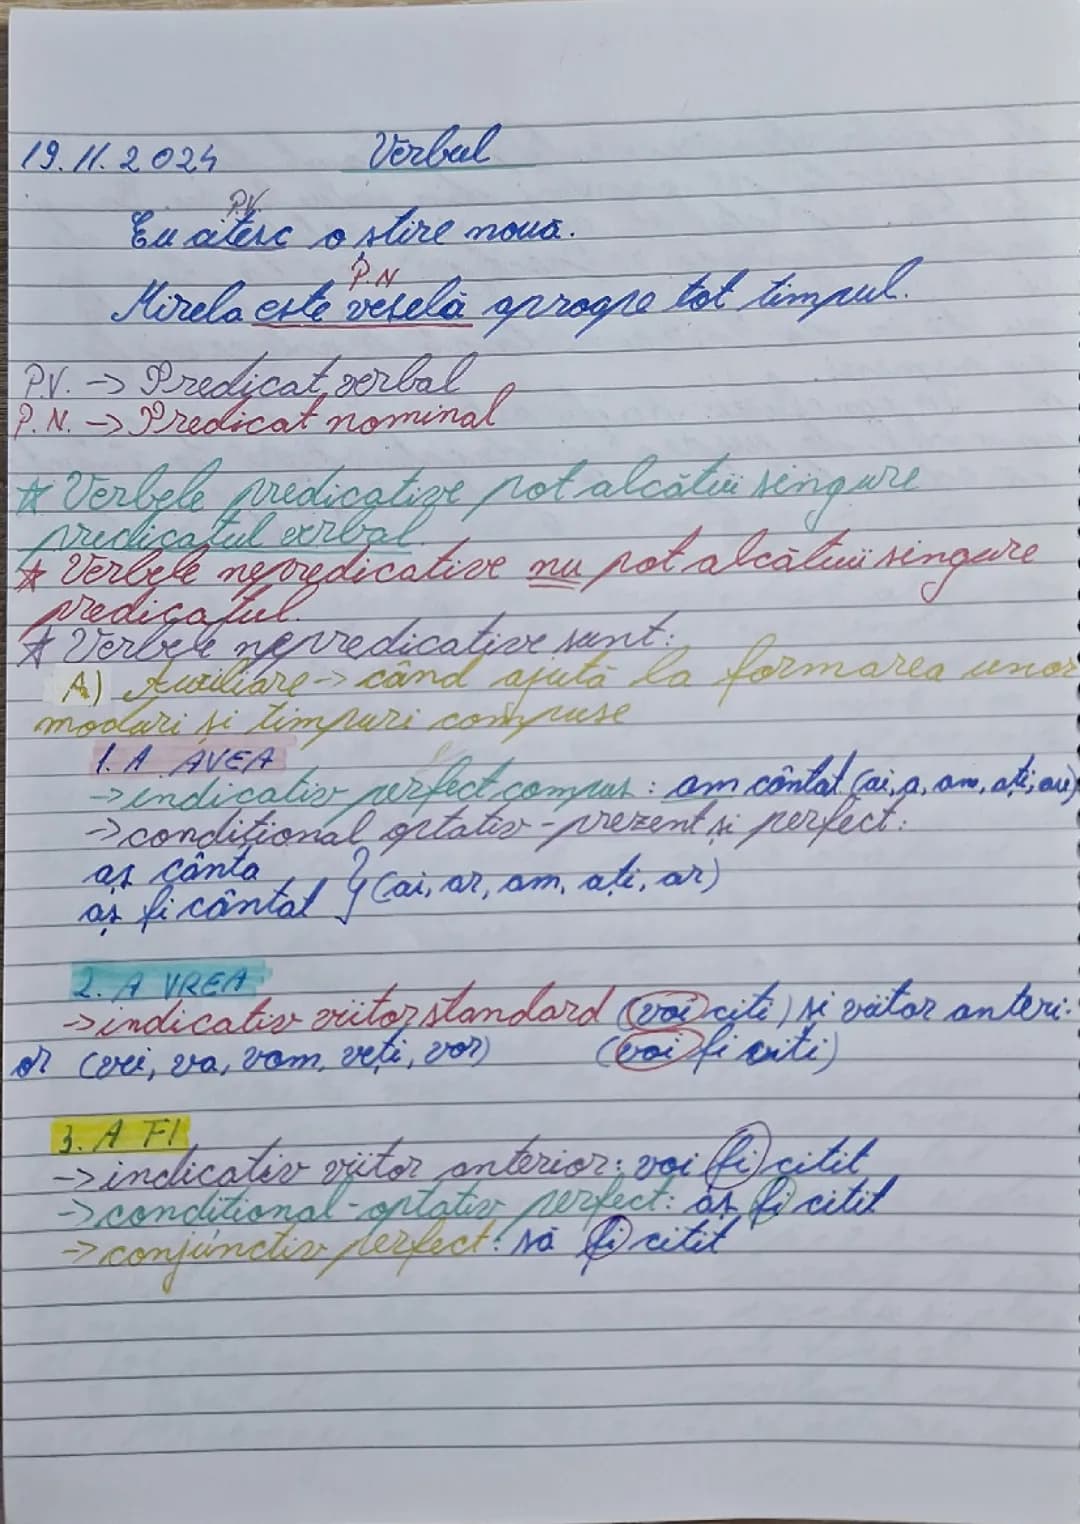 19.11.2024 Verbul
P.V.
Eu citesc o știre nouă.
P.N
Mirela este veselă aproape tot timpul.
P.V. -> Predicat verbal
P.N. -> Predicat nominal
☆ Verbele predicative pot alcătui singure
predicatul verbal.
☆ Verbele nepredicative nu pot alcătui singure
predicatul.
☆ Verbele nepredicative sunt:
A) Auxiliare -> când ajută la formarea unor
moduri și timpuri compuse
1. A AVEA
-> indicativ perfect compus: am cântat (ai, a, am, ați, au)
-> condițional optativ - prezent și perfect:
aș cânta
aș fi cântat } (ai, ar, am, ați, ar)
2. A VREA
-> indicativ viitor standard (voi citi) și viitor anteri-
or (vei, va, vom, veți, vor) (voi fi citi)
3. A FI
-> indicativ viitor anterior: voi fi citit
-> condițional-optativ perfect: aș fi citit
-> conjunctiv perfect: să fi citit